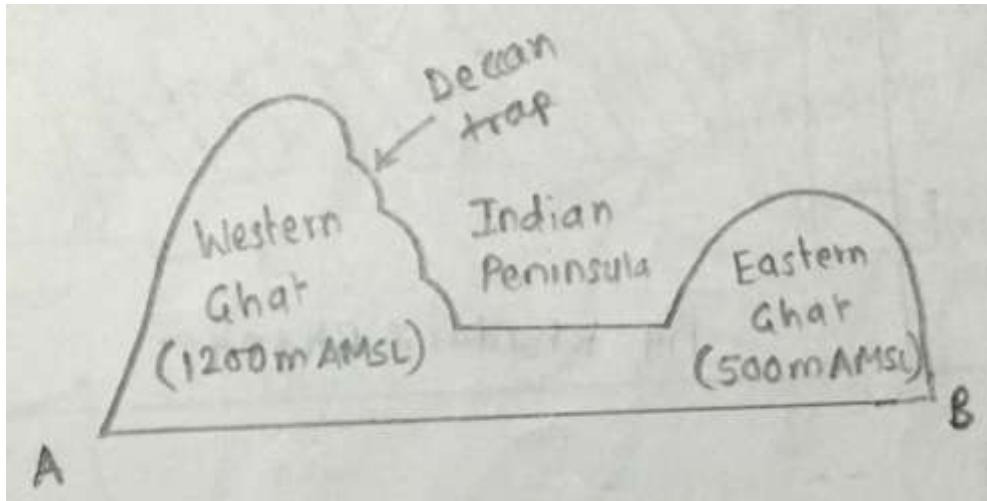 Deccan
trap
Western
Ghat
(1200m AMSL)
Indian
Peninsula
Eastern
Ghat
(500m AMSL)
A
B